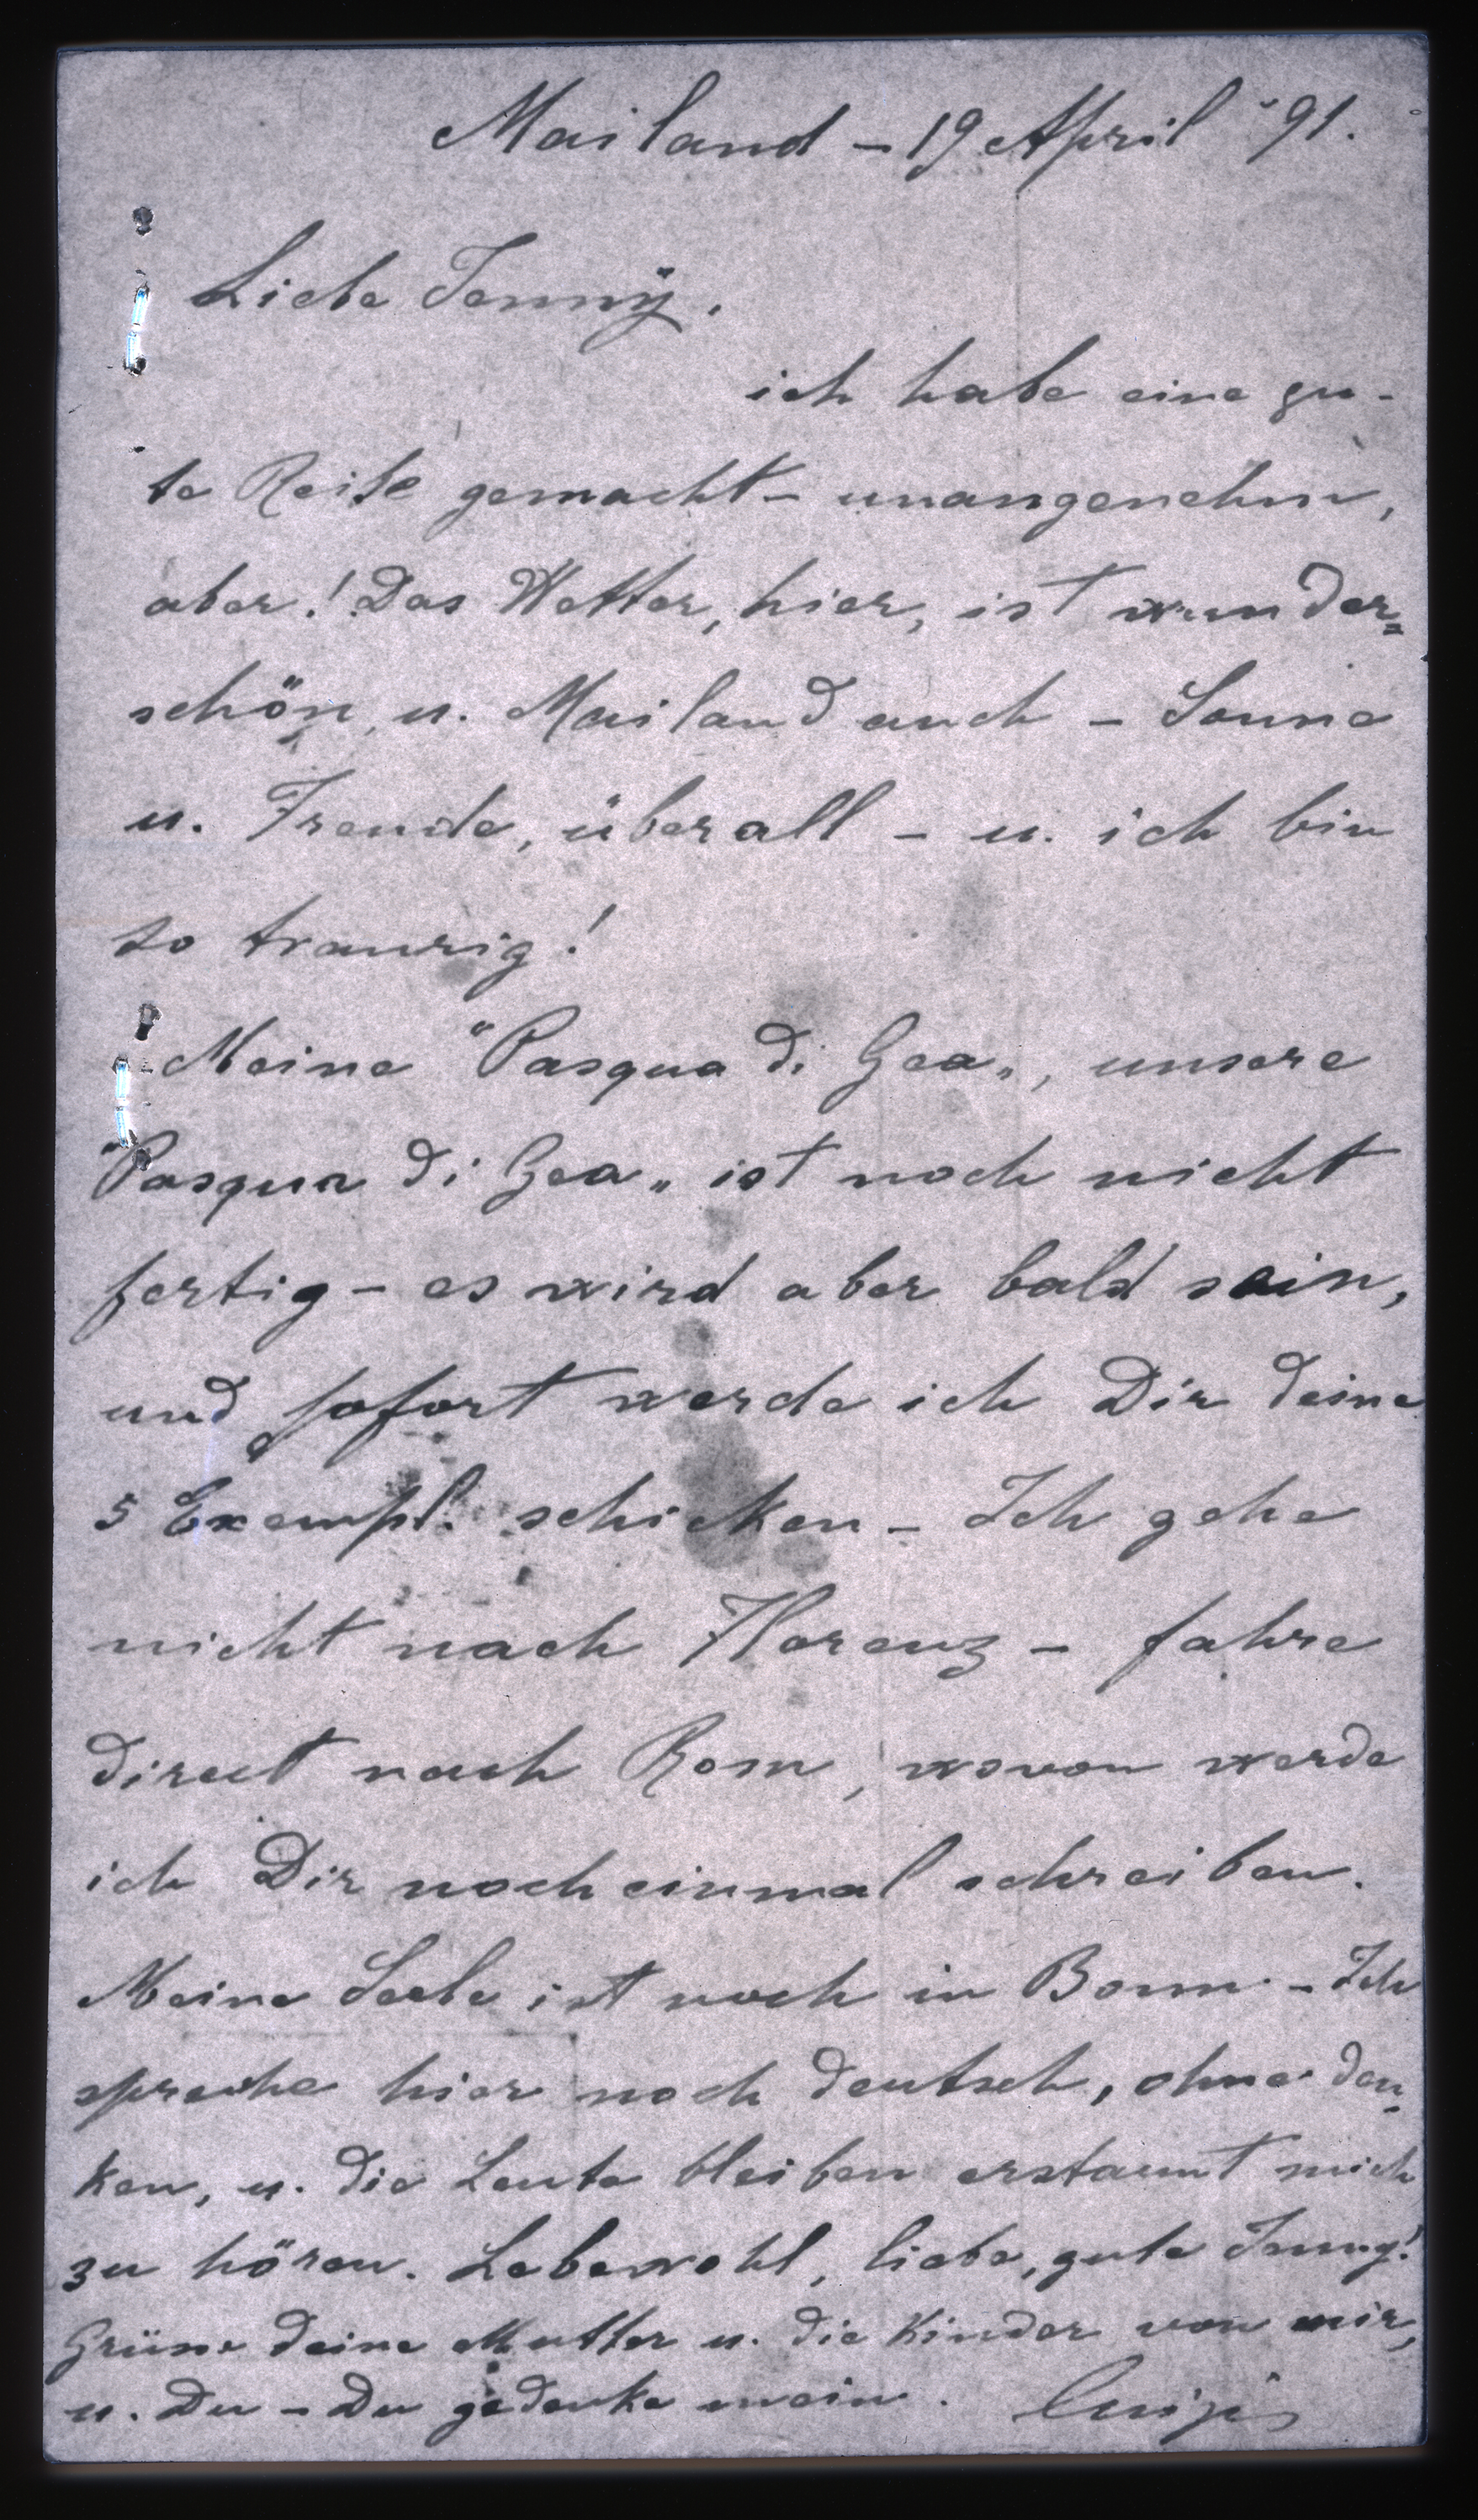 Mailand – 19 April '91.
Liebe Jenny.
ich habe eine gu-
te Reise gemacht – unangenehm,
aber! Das Wetter, hier, ist wunder=
schön, u. Mailand auch – Sonne
u. Freude, überall – u. ich bin
so traurig!
Meine "Pasqua di Gea„, unsere
"Pasqua di Gea„ ist noch nicht
fertig – es wird aber bald sein,
und sofort werde ich Dir deine
5 Exempl. schicken – Ich gehe
nicht nach Florenz – fahre
direct nach Rom, wovon werde
ich Dir noch einmal schreiben.
Meine Seele ist noch in Bonn – Ich
spreche hier noch deutsch, ohne den-
ken, u. die Leute bleiben erstaunt mich
zu hören. Lebewohl, liebe, gute Jenny!
deine Mutter u. die Kinder von mir,
u. Du – Du gedenke mein. Luigi